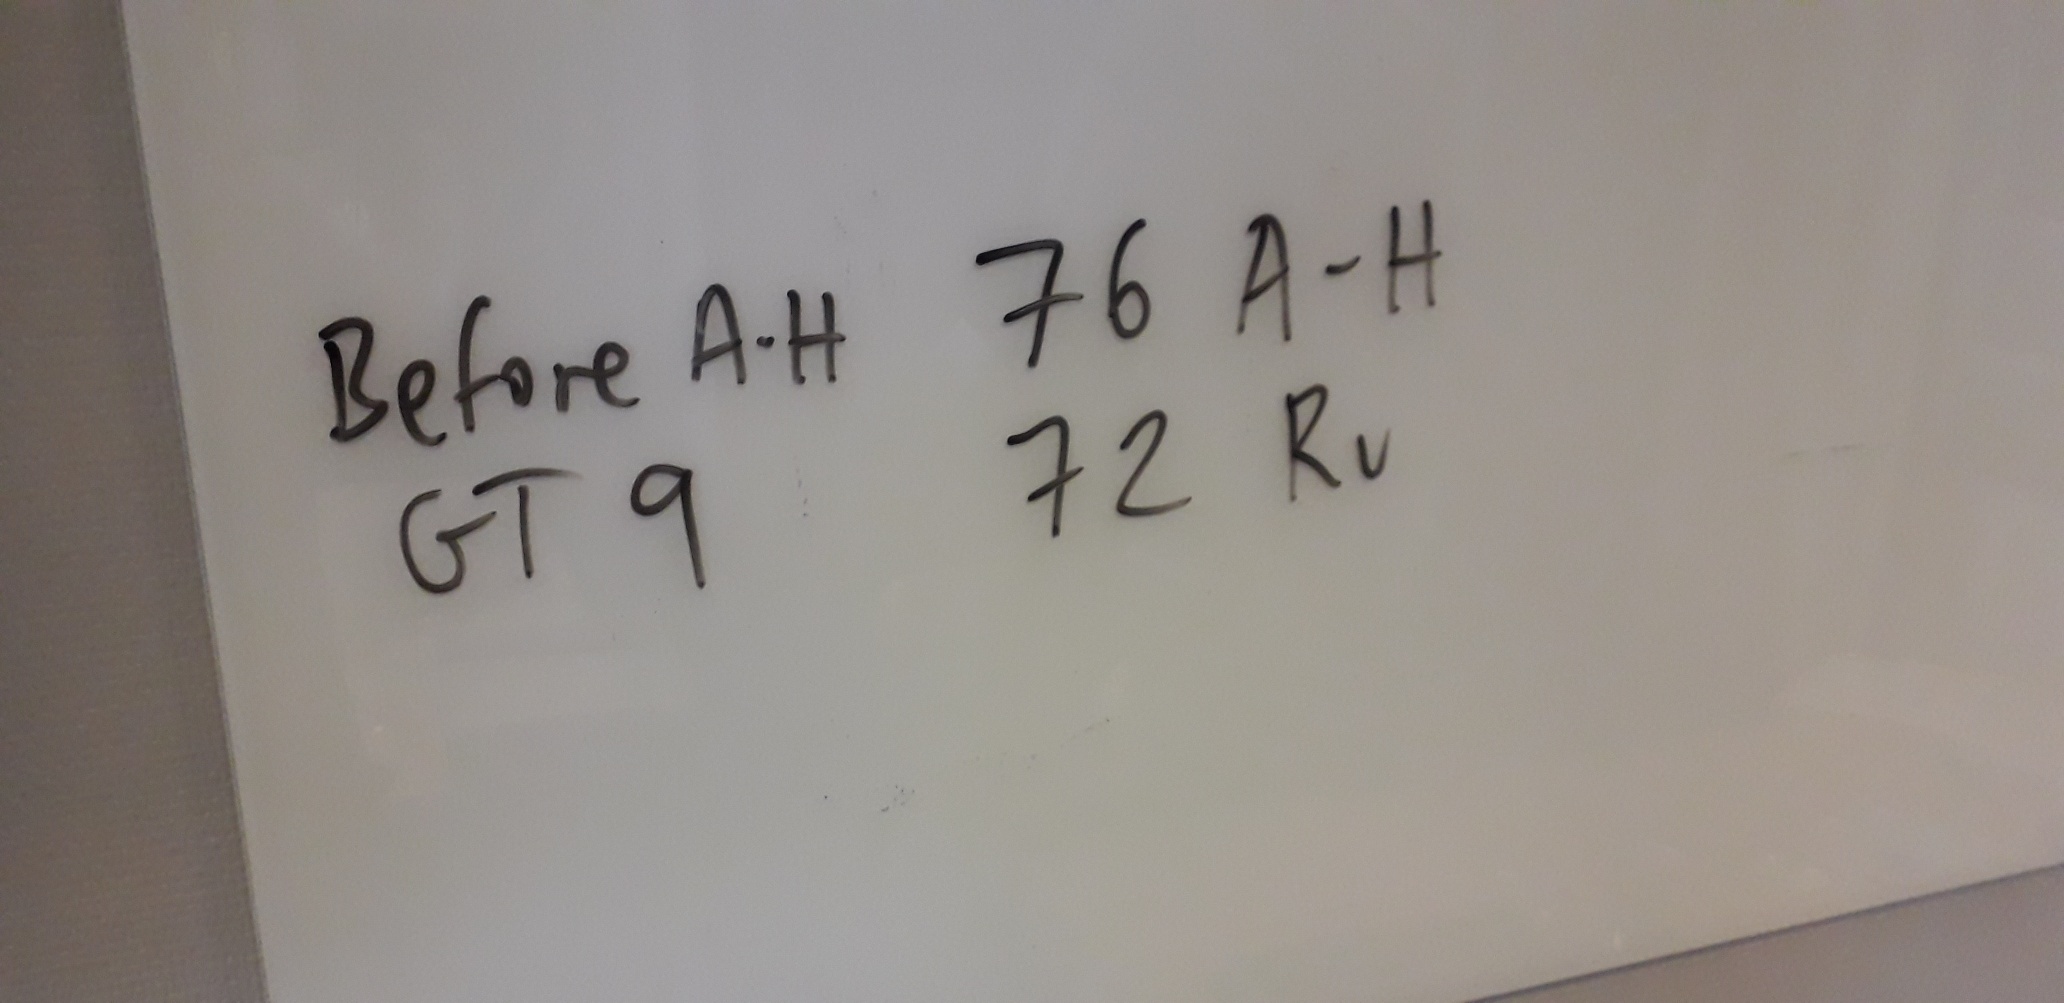 Before A-H 76 A-H
GT 9 72 Ru